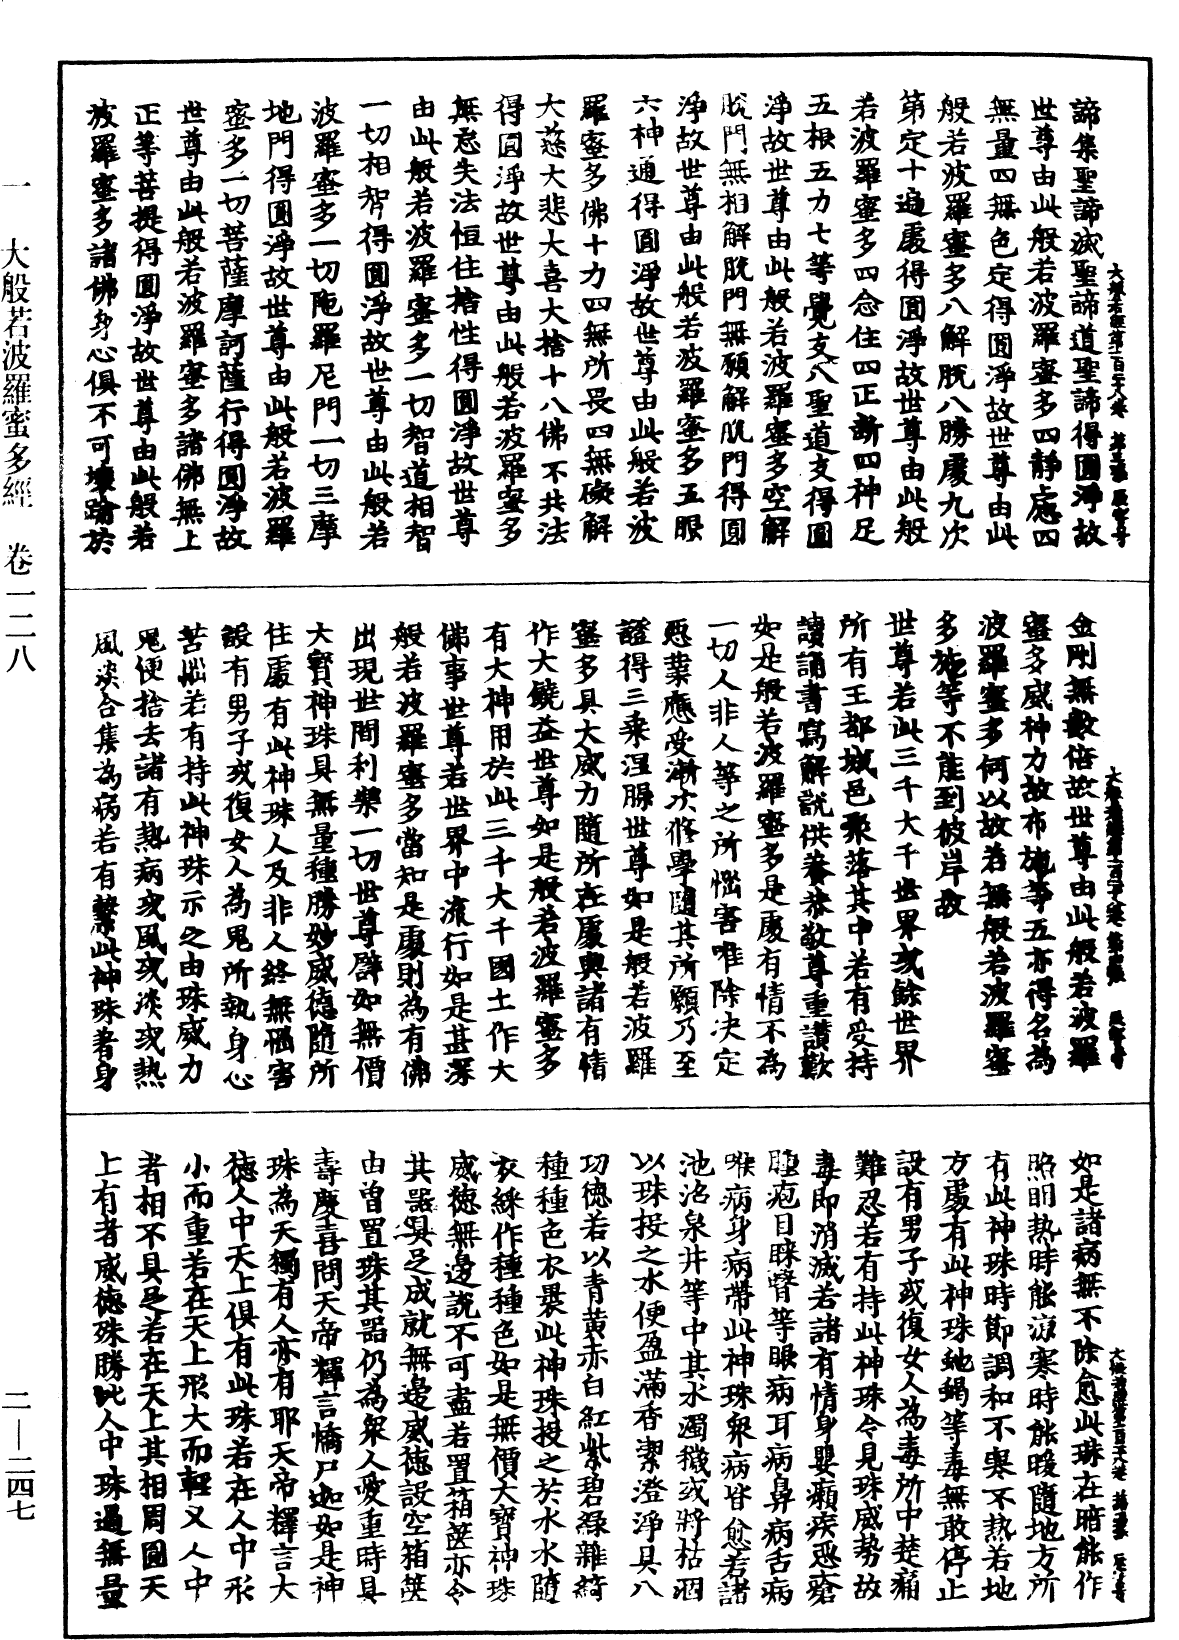 諦集聖諦滅聖諦道聖諦得圓淨故
世尊由此般若波羅蜜多四靜慮四
無量四無色定得圓淨故世尊由此
般若波羅蜜多八解脫八勝處九次
第定十遍處得圓淨故世尊由此般
若波羅蜜多四念住四正斷四神足
五根五力七等覺支八聖道支得圓
淨故世尊由此般若波羅蜜多空解
脫門無相解脫門無願解脫門得圓
淨故世尊由此般若波羅蜜多五眼
六神通得圓淨故世尊由此般若波
羅蜜多佛十力四無所畏四無礙解
大慈大悲大喜大捨十八佛不共法
得圓淨故世尊由此般若波羅蜜多
無忘失法恒住捨性得圓淨故世尊
由此般若波羅蜜多一切智道相智
一切相智得圓淨故世尊由此般若
波羅蜜多一切陁羅尼門一切三摩
地門得圓淨故世尊由此般若波羅
蜜多一切菩薩摩訶薩行得圓淨故
世尊由此般若波羅蜜多諸佛無上
正等菩提得圓淨故世尊由此般若
波羅蜜多諸佛身心俱不可壞踰於
金剛無數倍故世尊由此般若波羅
蜜多威神力故布施等五亦得名為
波羅蜜多何以故若無般若波羅蜜
多施等不能到彼岸故
世尊若此三千大千世界或餘世界
所有王都城邑聚落其中若有受持
讀誦書寫解說供養恭敬尊重讚歎
如是般若波羅蜜多是處有情不為
一切人非人等之所惱害唯除決定
惡業應受漸次修學隨其所願乃至
證得三乘涅槃世尊如是般若波羅
蜜多具大威力隨所在處與諸有情
作大饒益世尊如是般若波羅蜜多
有大神用於此三千大千國土作大
佛事世尊若世界中流行如是甚深
般若波羅蜜多當知是處則為有佛
出現世間利樂一切世尊譬如無價
大寶神珠具無量種勝妙威德隨所
住處有此神珠人及非人終無惱害
設有男子或復女人為鬼所執身心
苦惱若有持此神珠示之由珠威力
鬼便捨去諸有熱病或風或淡或熱
風淡合集為病若有繫此神珠著身
如是諸病無不除愈此珠在暗能作
照明熱時能涼寒時能暖隨地方所
有此神珠時節調和不寒不熱若地
方處有此神珠虵蝎等毒無敢停止
設有男子或復女人為毒所中楚痛
難忍若有持此神珠令見珠威勢故
毒即消滅若諸有情身嬰癩疾惡瘡
腫皰目眩瞖等眼病耳病鼻病舌病
喉病身病帶此神珠眾病皆愈若諸
池沼泉井等中其水濁穢或將枯涸
以珠投之水便盈滿香潔澄淨具八
功德若以青黃赤白紅紫碧綠雜綺
種種色衣裹此神珠投之於水水隨
衣綵作種種色如是無價大寶神珠
威德無邊說不可盡若置箱篋亦令
其器具足成就無邊威德設空箱篋
由曾置珠其器仍為眾人愛重時具
壽慶喜問天帝釋言憍尸迦如是神
珠為天獨有人亦有耶天帝釋言大
德人中天上俱有此珠若在人中形
小而重若在天上形大而輕又人中
者相不具足若在天上其相周圓天
上有者威德殊勝此人中珠過無量
一 大般若波羅蜜多經 卷一二八
二—二四七